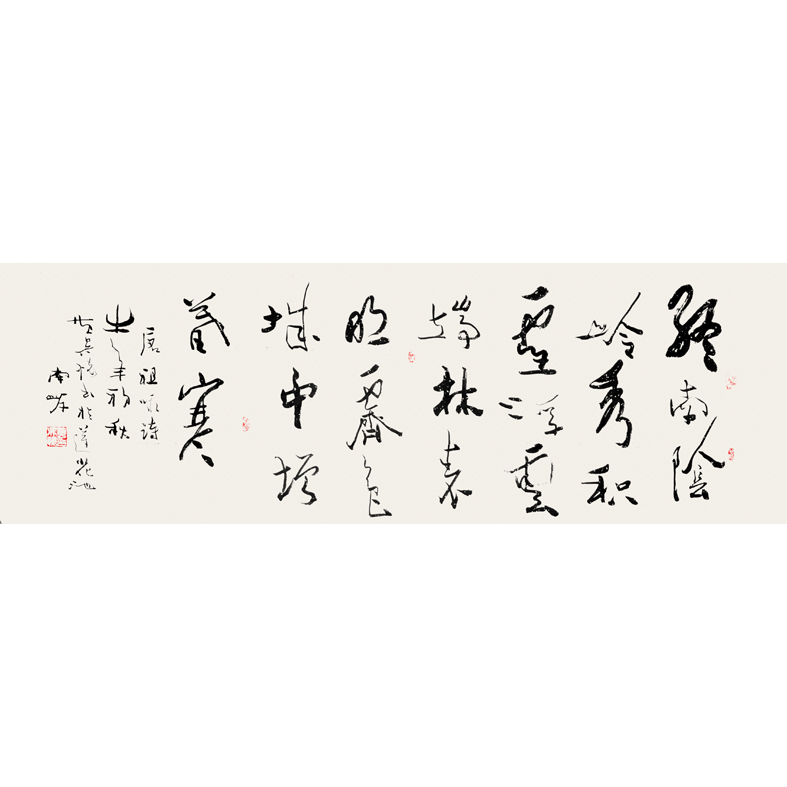 終南陰
岭秀积
雪浮雲
端林表
明霽色
城中增
暮寒
唐祖咏詩
年初秋
於蓮花池
南